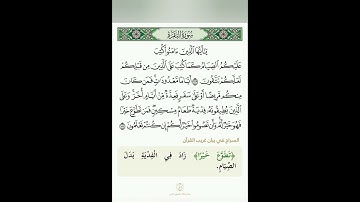 سُورَةُ البَقَرَةِ
يَٰٓأَيُّهَا ٱلَّذِينَ ءَامَنُواْ كُتِبَ
عَلَيۡكُمُ ٱلصِّيَامُ كَمَا كُتِبَ عَلَى ٱلَّذِينَ مِن قَبۡلِكُمۡ
لَعَلَّكُمۡ تَتَّقُونَ ١٨٣ أَيَّامٗا مَّعۡدُودَٰتٖۚ فَمَن كَانَ
مِنكُم مَّرِيضًا أَوۡ عَلَىٰ سَفَرٖ فَعِدَّةٞ مِّنۡ أَيَّامٍ أُخَرَۚ وَعَلَى
ٱلَّذِينَ يُطِيقُونَهُۥ فِدۡيَةٞ طَعَامُ مِسۡكِينٖۖ فَمَن تَطَوَّعَ خَيۡرٗا
فَهُوَ خَيۡرٞ لَّهُۥۚ وَأَن تَصُومُواْ خَيۡرٞ لَّكُمۡ إِن كُنتُمۡ تَعۡلَمُونَ ١٨٤
السراج في بيان غريب القرآن
﴿تَطَوَّعَ خَيْرًا﴾ زَادَ فِي الفِدْيَةِ بَدَلَ
الصِّيَامِ.